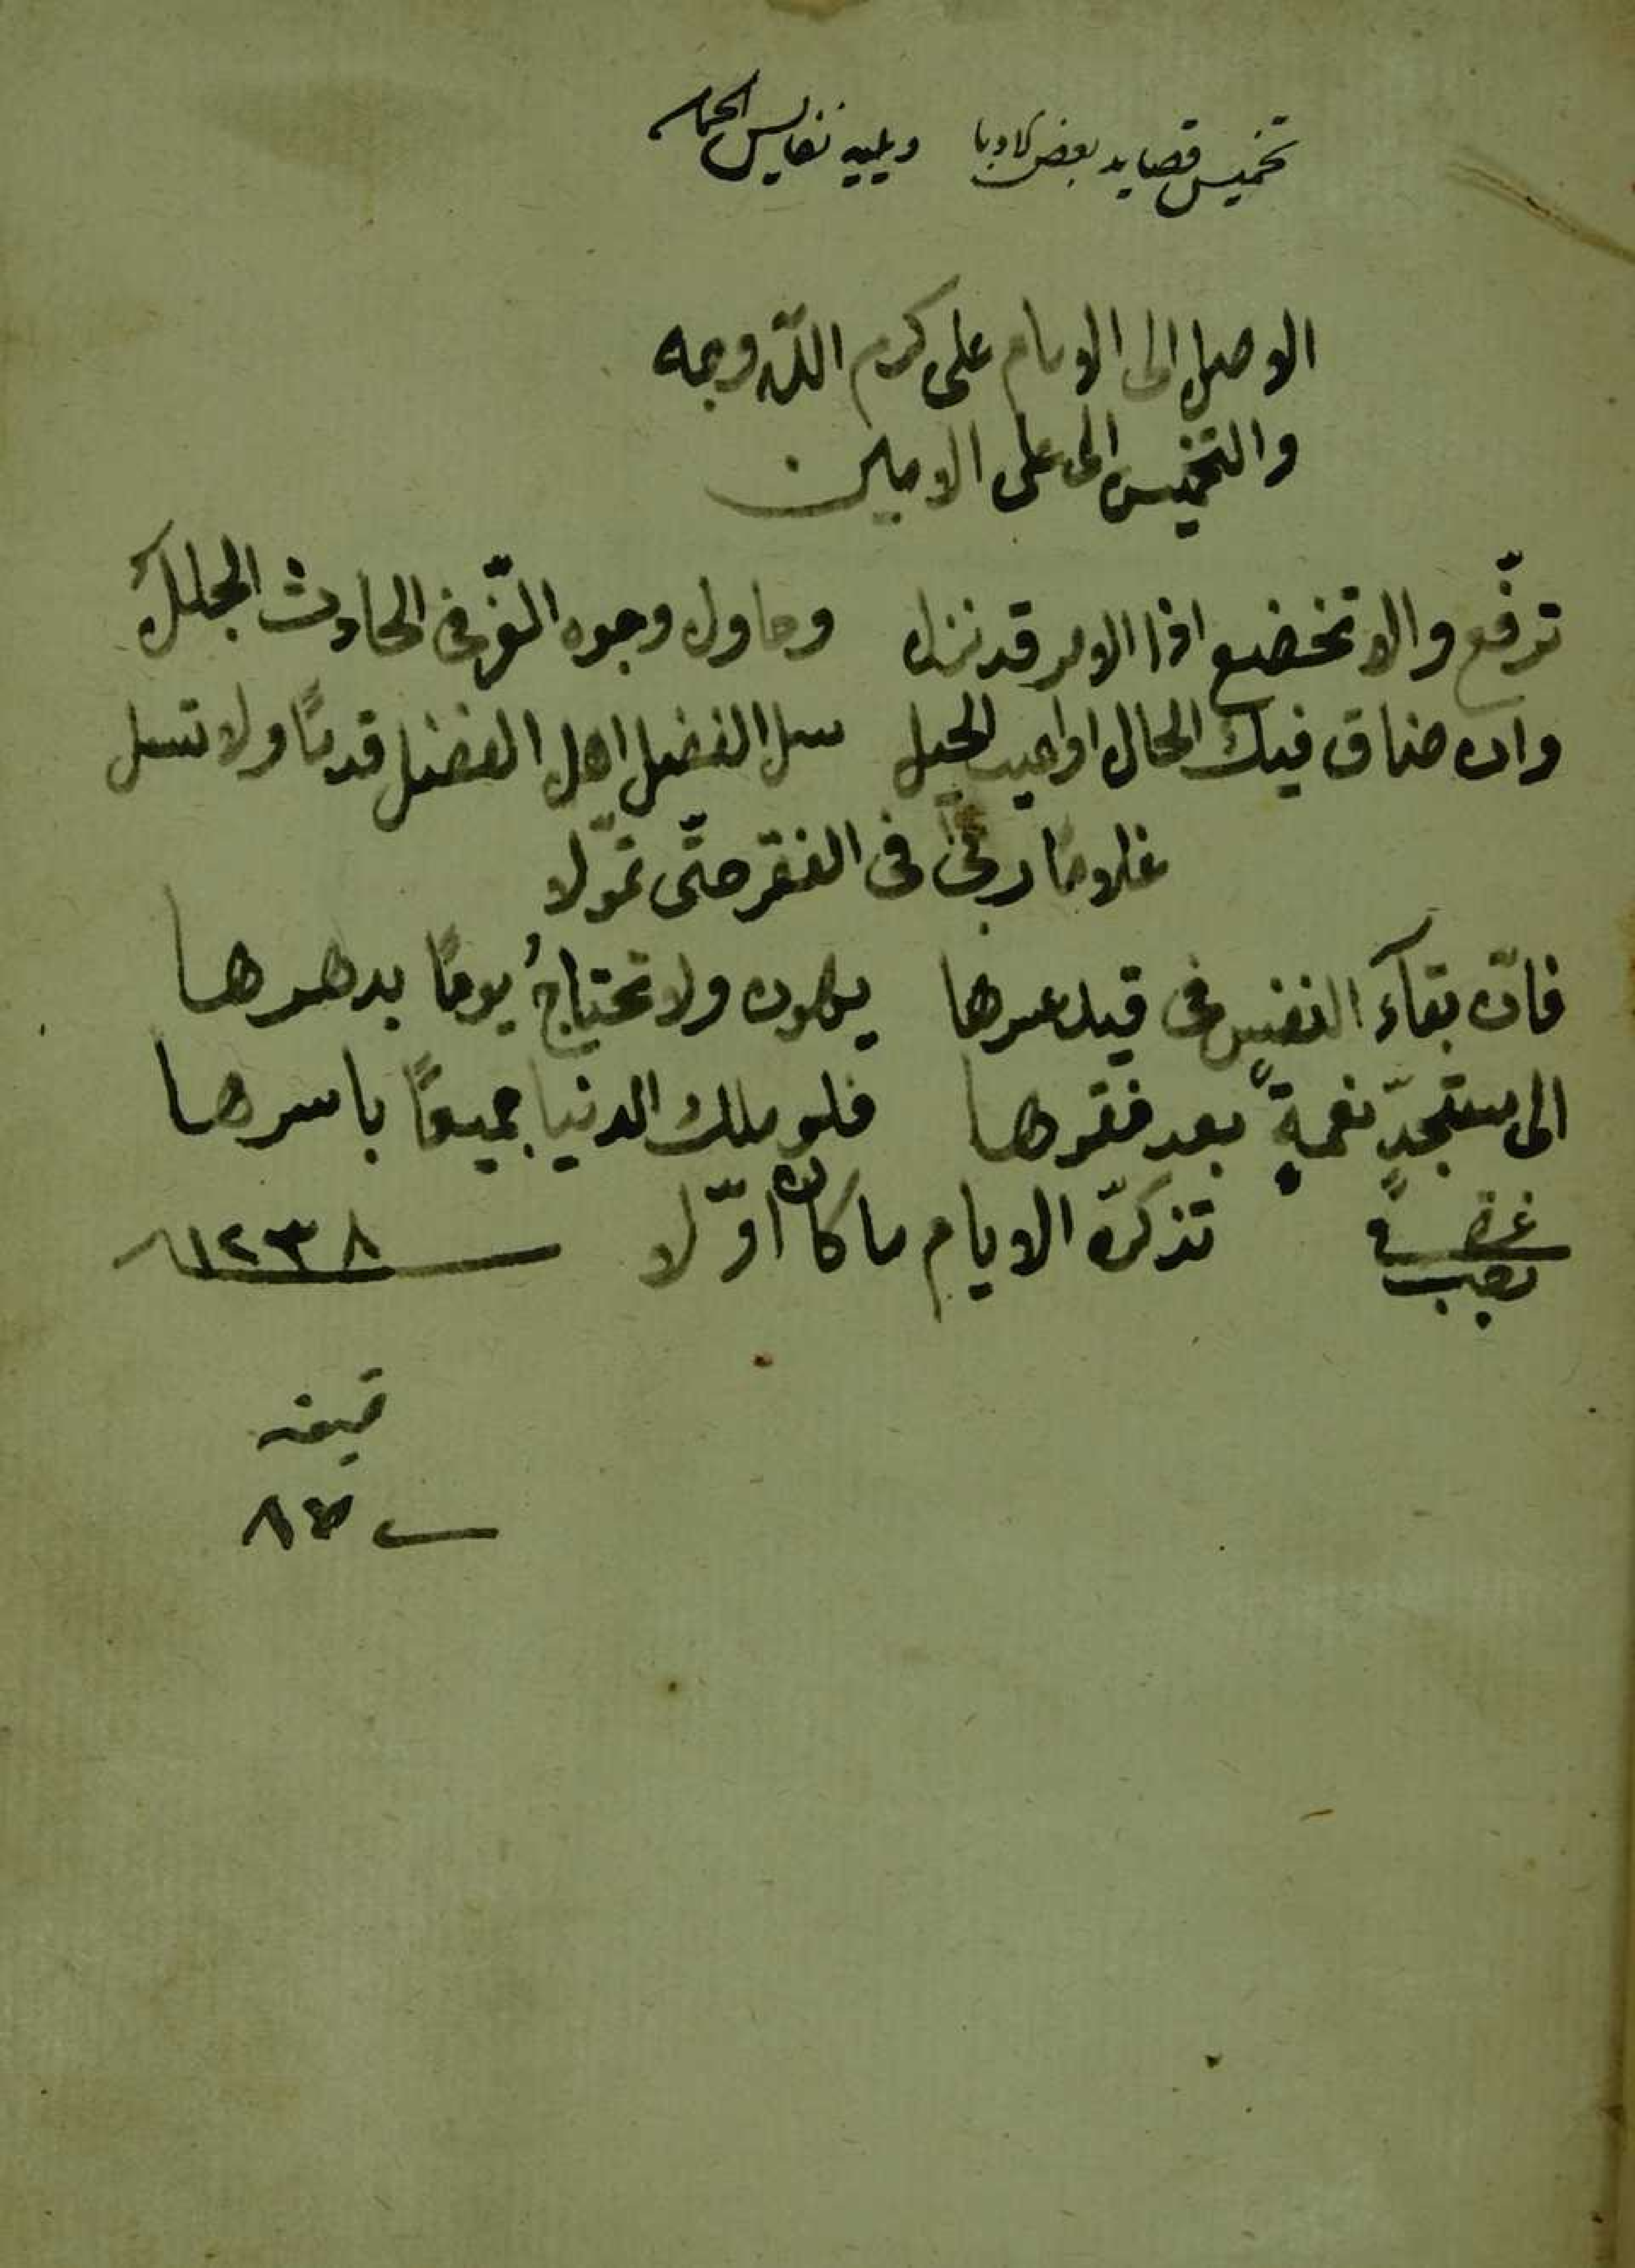 تخميس قصايد بعض الادبا ويليه نفايس
الاصل الى الامام على كرم اللّه وجهه
والتخميس الى على الامين
ترفّع والا تخضع اذا الامر قد نزل وحاول وجوه العزّ فى الحادث الجلل
وان ضاق فيك الحال او اعيت الحيل سل الفضل اهل الفضل قدمًا ولا تسل
غلامًا ربى فى الفقر حتّى تموّلا
فانّ بقآء النفس فى قيد عسرها يهون ولا تحتاجُ يومًا بدهرها
الى مستجدٍّ نعمةٍ بعد فقرها فلو ملك الدنيا جميعًا باسرها
تذكرّه الايام ما كان اوّلا ١٢٣٨
غرة
رجب